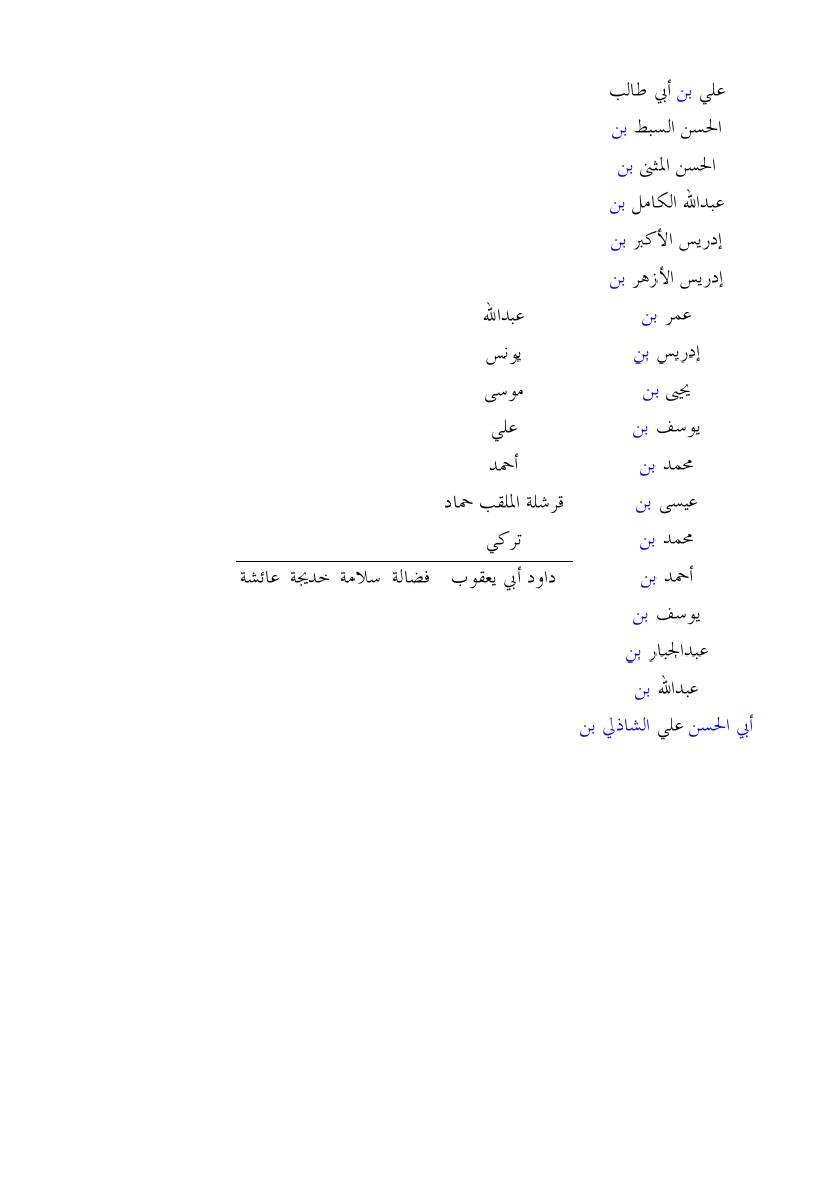 علي بن أبي طالب
الحسن السبط بن
الحسن المثنى بن
عبدالله الكامل بن
إدريس الأكبر بن
إدريس الأزهر بن
عمر بن عبدالله
إدريس بن يونس
يحيى بن موسى
يوسف بن علي
محمد بن أحمد
عيسى بن قرشلة الملقب حماد
محمد بن تركي
أحمد بن داود أبي يعقوب فضالة سلامة خديجة عائشة
يوسف بن
عبدالجبار بن
عبدالله بن
أبي الحسن علي الشاذلي بن